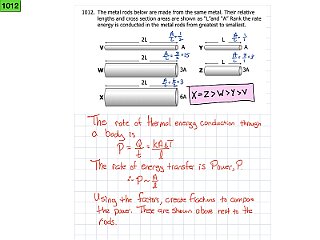 1012
1012. The metal rods below are made from the same metal. Their relative
lengths and cross section areas are shown as "L" and "A" Rank the rate
energy is conducted in the metal rods from greatest to smallest.
2L A/L = 1/2
V A
L A/L = 1/1
Y A
2L
W 3A
L
Z 3A
2L
X 6A
X=Z>W>Y>V
The rate of thermal energy conduction through
a body is
P = Q/t = kAΔT/l
The rate of energy transfer is Power, P
∴ P ~ A/l
Using the factors, create fractions to compare
the power. These are shown above next to the
rods.